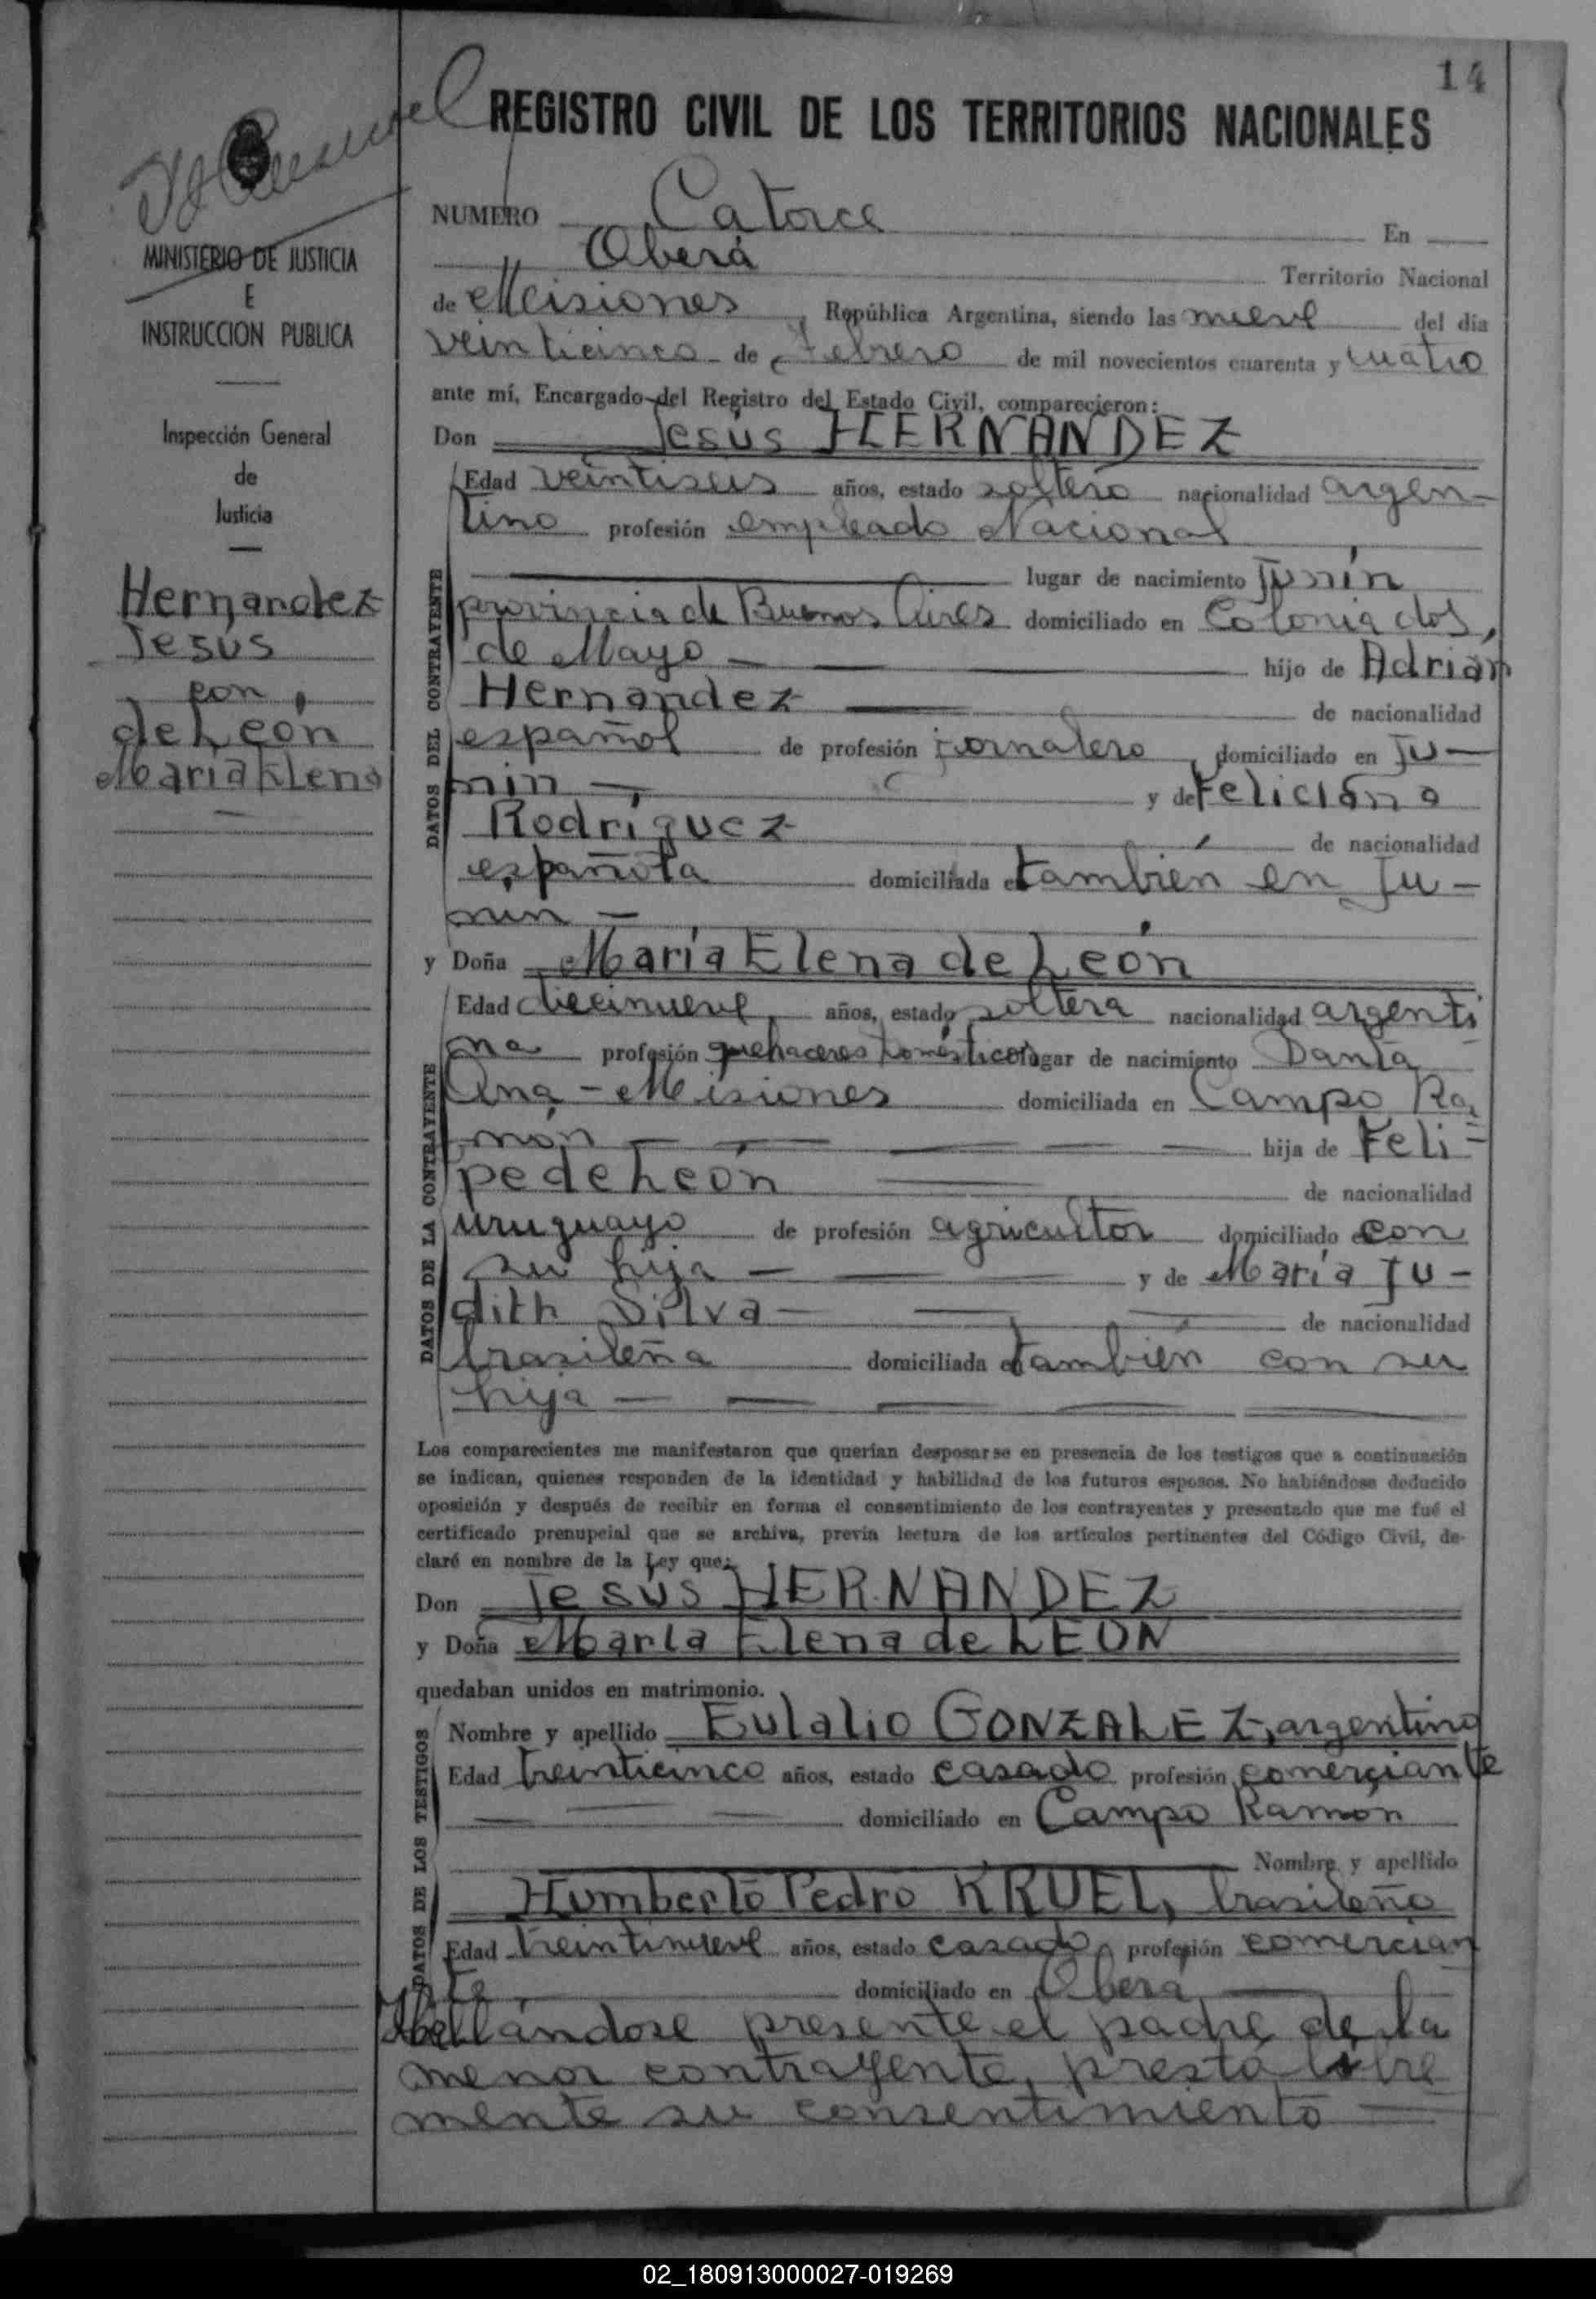 14
REGISTRO CIVIL DE LOS TERRITORIOS NACIONALES
MINISTERIO DE JUSTICIA
E
INSTRUCCION PUBLICA
Inspección General
de
Justicia
Hernandez
Jesús
con
de León
María Elena
NUMERO Catorce En
Oberá Territorio Nacional
de Misiones, República Argentina, siendo las nueve del día
veinticinco de Febrero de mil novecientos cuarenta y cuatro
ante mí, Encargado del Registro del Estado Civil, comparecieron:
Don Jesús HERNANDEZ
DATOS DEL CONTRAYENTE
Edad veintiseis años, estado soltero nacionalidad argen-
tino profesión empleado Nacional
lugar de nacimiento Junín
provincia de Buenos Aires domiciliado en Colonia dos
de Mayo — hijo de Adrián
Hernandez — de nacionalidad
español de profesión jornalero, domiciliado en Ju-
nin — y de Feliciana
Rodríguez de nacionalidad
española domiciliada en también en Ju-
nin —
y Doña María Elena de León
DATOS DE LA CONTRAYENTE
Edad diecinueve años, estado soltera nacionalidad argenti
na profesión quehaceres domésticos lugar de nacimiento Santa
Ana - Misiones domiciliada en Campo Ra
món — hija de Feli-
pe de León de nacionalidad
uruguayo de profesión agricultor domiciliado en con
su hija — y de María Ju-
dith Silva — de nacionalidad
brasileña domiciliada en también con su
hija —
Los comparecientes me manifestaron que querían desposarse en presencia de los testigos que a continuación
se indican, quienes responden de la identidad y habilidad de los futuros esposos. No habiéndose deducido
oposición y después de recibir en forma el consentimiento de los contrayentes y presentado que me fué el
certificado prenupcial que se archiva, previa lectura de los artículos pertinentes del Código Civil, de-
claré en nombre de la Ley que:
Don Jesús HERNANDEZ
y Doña María Elena de LEON
quedaban unidos en matrimonio.
DATOS DE LOS TESTIGOS
Nombre y apellido Eulalio GONZALEZ, argentino
Edad treinticinco años, estado casado profesión comerciante
domiciliado en Campo Ramón
Nombre y apellido
Humberto Pedro KRUEL, brasileño
Edad treintinueve años, estado casado, profesión comercian
te domiciliado en Oberá —
Hallándose presente el padre de la
menor contrayente, prestó libre
mente su consentimiento —
02_180913000027-019269